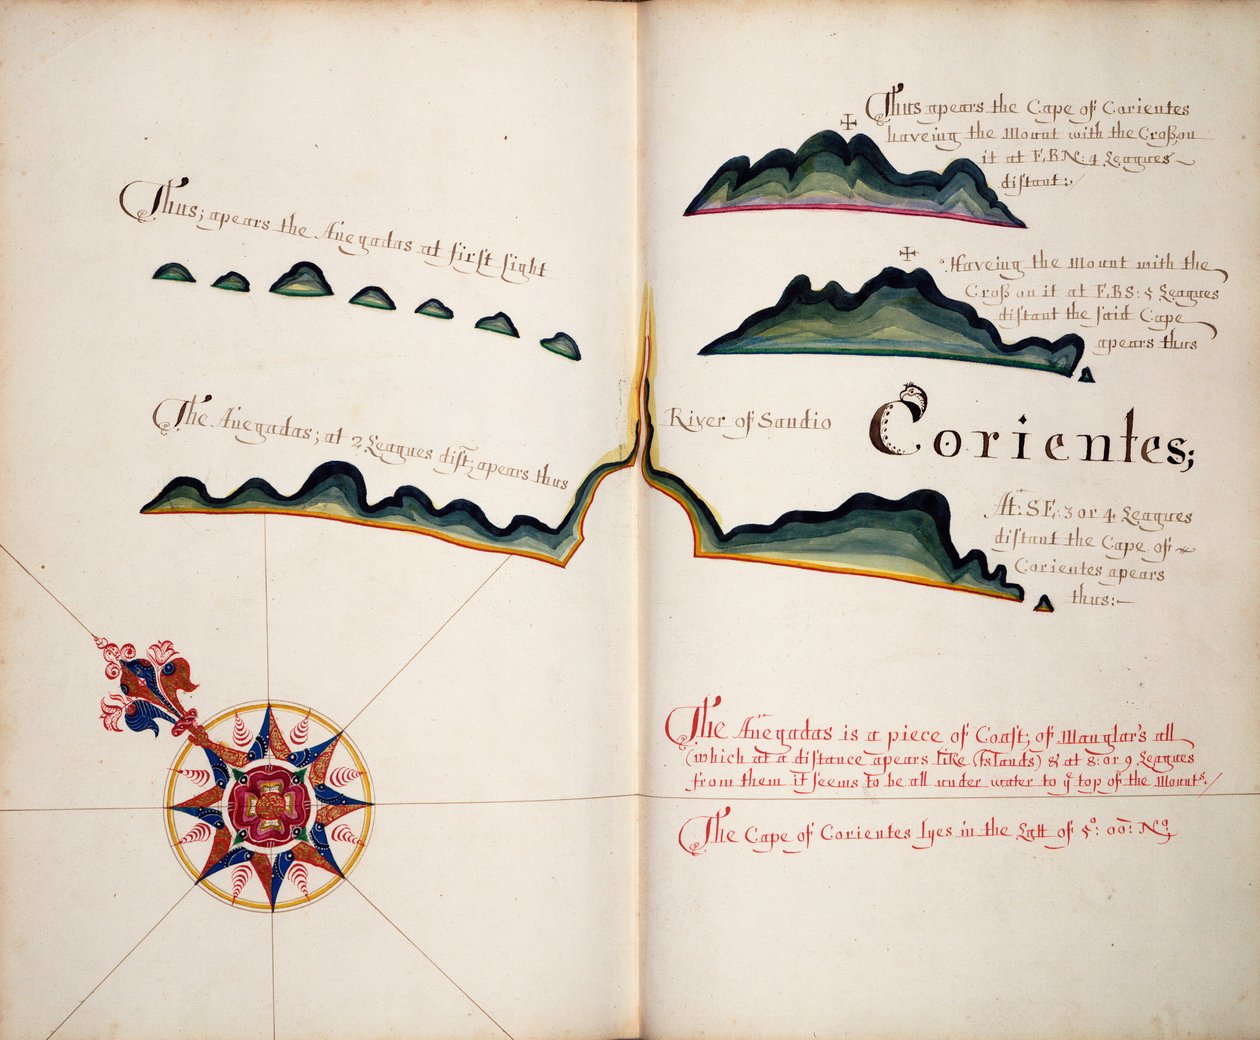 Thus; apears the Auegadas at first sight
The Auegadas; at 2 Leagues dist; apears thus
Thus apears the Cape of Corientes
haveing the Mount with the Croß on
it at E,BN: 4 Leagues
distant:
Haveing the Mount with the
Croß on it at E,BS: 5 Leagues
distant the said Cape
apears thus
River of Sandio
Corientes;
At: SE, 3 or 4 Leagues
distant the Cape of
Corientes apears
thus:
The Auegadas is a piece of Coast; of Manglar's all
(which at a distance apears like (Islands) & at 8: or 9 Leagues
from them it seems to be all under water to yᵉ top of the Mountˢ.
The Cape of Corientes lyes in the Latt of 5°: 00: Nº